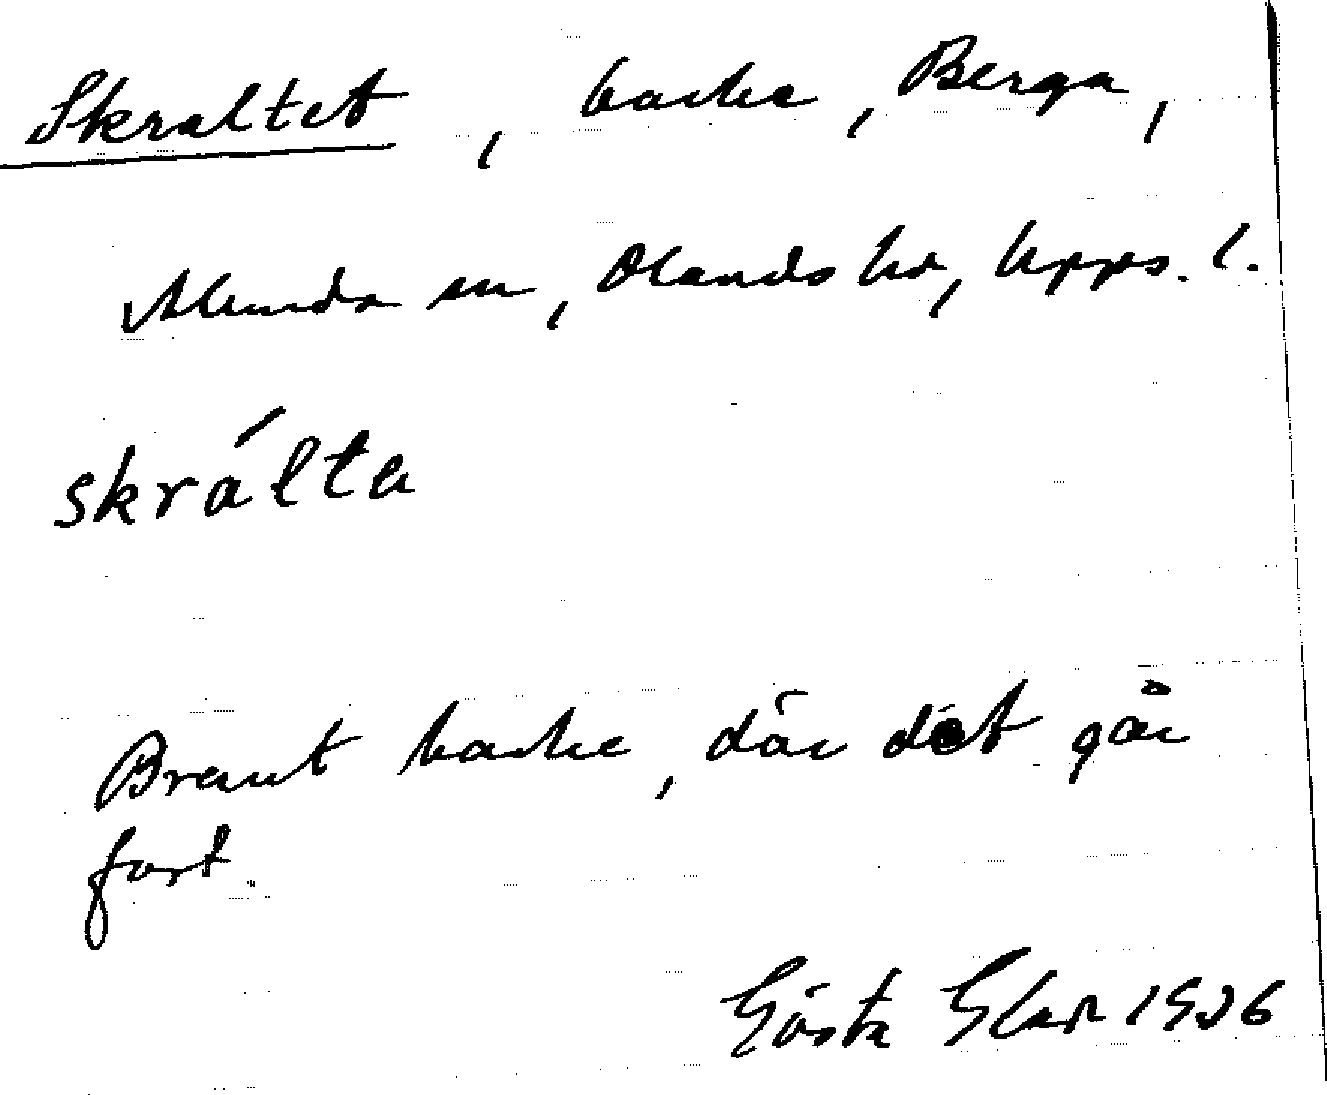 Skraltet, backe, Berga,
Alunda sn, Olands hd, Upps. l.
skrálta
Brant backe, där det går
fort.
Gösta 1936